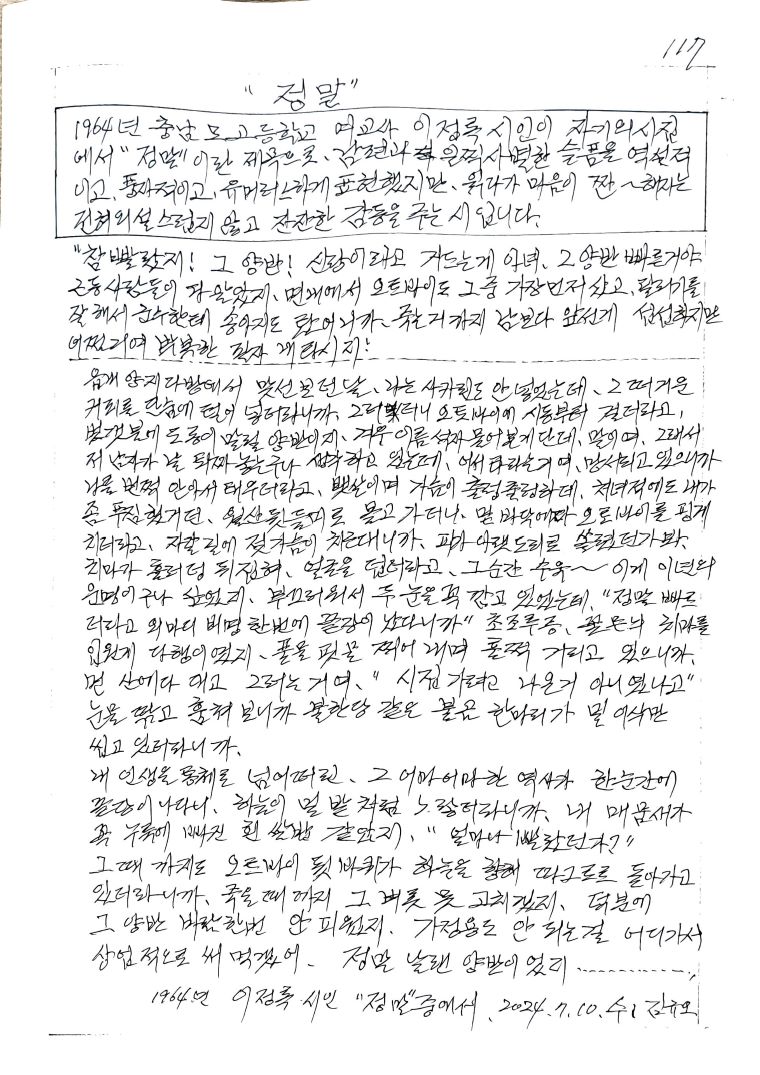 117
"정말"
1964년 충남 모 고등학교 여교사 이정록 시인이 자기의 시집
에서 "정말"이란 제목으로, 남편과 의 사별한 슬픔을 역설적
이고, 풍자적이고, 유머러스하게 표현했지만, 읽다가 마음이 짠~해지는
전혀 외설스럽지 않고 잔잔한 감동을 주는 시 입니다.
"참 빨랐지! 그 양반! 신랑이라고 거드는게 아녀, 그 양반 빠른거야
근동 사람들이 다 알았지, 면내에서 오토바이도 그중 가장 먼저 샀고, 달리기를
잘해서 군수한테 송아지도 탔으니까, 죽는거까지 남보다 앞선게 섭섭하지만
어쩔거여 박복한 팔자 탓이지!
읍내 양지다방에서 맞선보던 날, 나는 사카린도 안 넣었는데, 그 뜨거운
커피를 단숨에 털어 넣더라니까, 그러더니 오토바이에 시동부터 걸더라고,
번갯불에 도롱이 말릴 양반이지, 겨우 이름 석자 물어 본게 단데, 말이여, 그래서
저 남자가 날 퇴짜 놓는구나 생각하고 있는데, 어서 타라는거여, 망서리고 있으니까
나를 번쩍 안아서 태우더라고, 뱃살이며 가슴이 출렁출렁하데, 처녀적에도 내가
좀 푸짐했거던, 월산 뒷들미로 몰고 가더니, 밀 바닥에다 오토바이를 팽개
치더라고, 자갈길에 젖가슴이 치근대니까, 피가 아랫도리로 쏠렸던가봐,
치마가 훌러덩 뒤집혀, 얼굴을 덮더라고, 그 순간 수욱~ 이게 이년의
운명이구나 싶었지, 부끄러워서 두 눈을 꼭 감고 있었는데, "정말 빠르
더라고 외마디 비명 한번에 끝장이 났다니까" 초조루증, 꽃무늬 치마를
입은게 다행이였지, 풀물 핏물 찍어내며 훌쩍 거리고 있으니까,
먼 산에다 대고 그러는거여, "시집가려고 나온거 아니였냐고"
눈을 닦고 훔쳐 보니까 불한당 같은 불곰 한마리가 밀 이삭만
씹고 있더라니까,
내 인생을 통째로 넘어뜨린, 그 어마어마한 역사가 한순간에
끝장이 나다니, 하늘이 밀 밭처럼 노랗더라니까, 내 매무새가
꼭 누룩에 빠진 흰 쌀밥 같았지, "얼마나 빨랐던가?"
그때 까지도 오토바이 뒷바퀴가 하늘을 향해 따그르르 돌아가고
있더라니까, 죽을때 까지 그 버릇 못 고치겠지, 덕분에
그 양반 바람 한번 안 피웠지, 가정용도 안 되는걸 어디가서
상업적으로 써 먹겠어, 정말 날랜 양반이었지 ............,
1964년 이정록 시인 "정말"중에서, 2024.7.10.수,